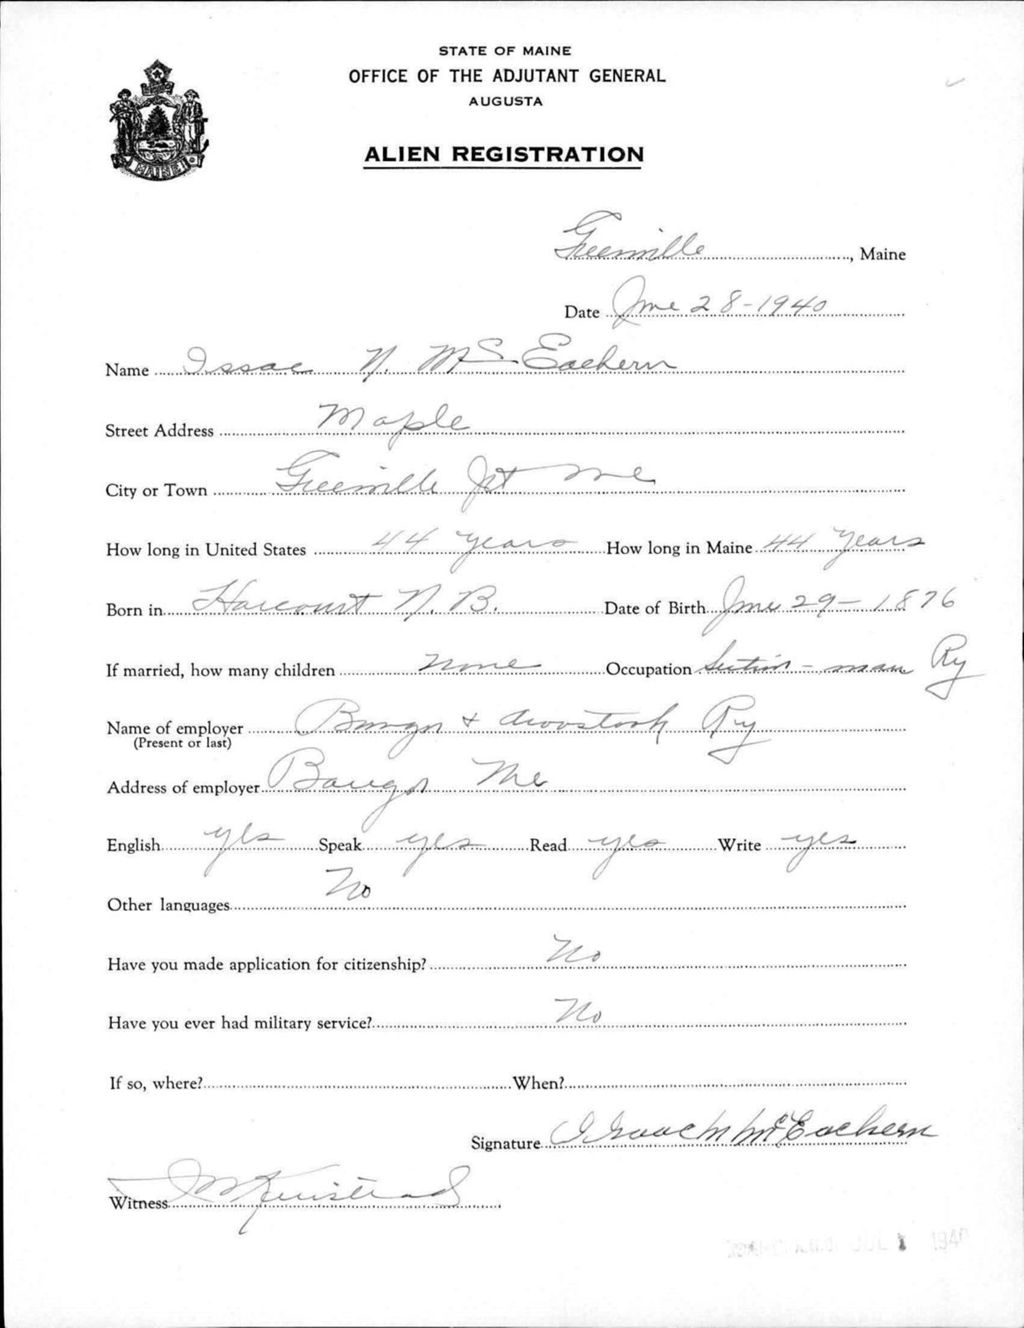 STATE OF MAINE
OFFICE OF THE ADJUTANT GENERAL
AUGUSTA
ALIEN REGISTRATION
MAINE
Greenville, Maine
Date June 28-1940
Name Issac N. McEachern
Street Address Maple
City or Town Greenville Jct Me
How long in United States 44 years How long in Maine 44 years
Born in Harcourt N.B. Date of Birth June 29-1876
If married, how many children none Occupation Section-man Ry
Name of employer Bangor & Aroostook Ry
(Present or last)
Address of employer Bangor Me
English yes Speak yes Read yes Write yes
Other languages No
Have you made application for citizenship? No
Have you ever had military service? No
If so, where? When?
Signature Isaac N McEachern
Witness
JUL 1 1940